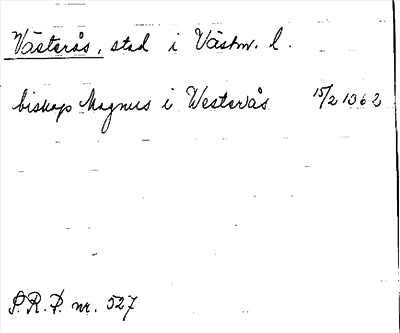 Västerås, stad i Västm. l.
biskop Magnus i Westerås 15/2 1362
S.R.P. nr. 527